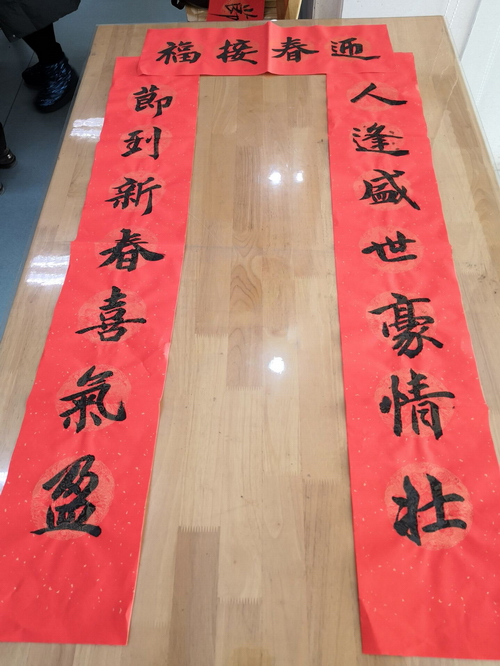 迎春接福
人逢盛世豪情壮
節到新春喜氣盈